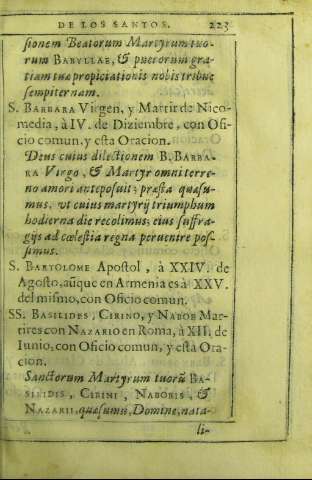 DE LOS SANTOS. 223
ſionem Beatorum Martyrum tuo-
rum BABYLLAE, & puerorum gra-
tiam tuæ propiciationis nobis tribue
ſempiternam.
S. BARBARA Virgen, y Martir de Nico-
media, à IV. de Diziembre, con Ofi-
cio comun, y eſta Oracion.
Deus cuius dilectionem B. BARBA-
RA Virgo, & Martyr omni terre-
no amori antepoſuit; præſta quæſu-
mus, vt cuius martyrij triumphum
hodierna die recolimus; eius ſuffra-
gijs ad cœleſtia regna peruenire poſ-
ſimus.
S. BARTOLOME Apoſtol, à XXIV. de
Agoſto, aũque en Armenia es à XXV.
del miſmo, con Oficio comun.
SS. BASILIDES, CIRINO, y NABOR Mar-
tires con NAZARIO en Roma, à XII. de
Iunio, con Oficio comun, y eſta Ora-
cion.
Sanctorum Martyrum tuorũ BA-
SILIDIS, CIRINI, NABORIS, &
NAZARII, quæſumus, Domine, nata-
li-